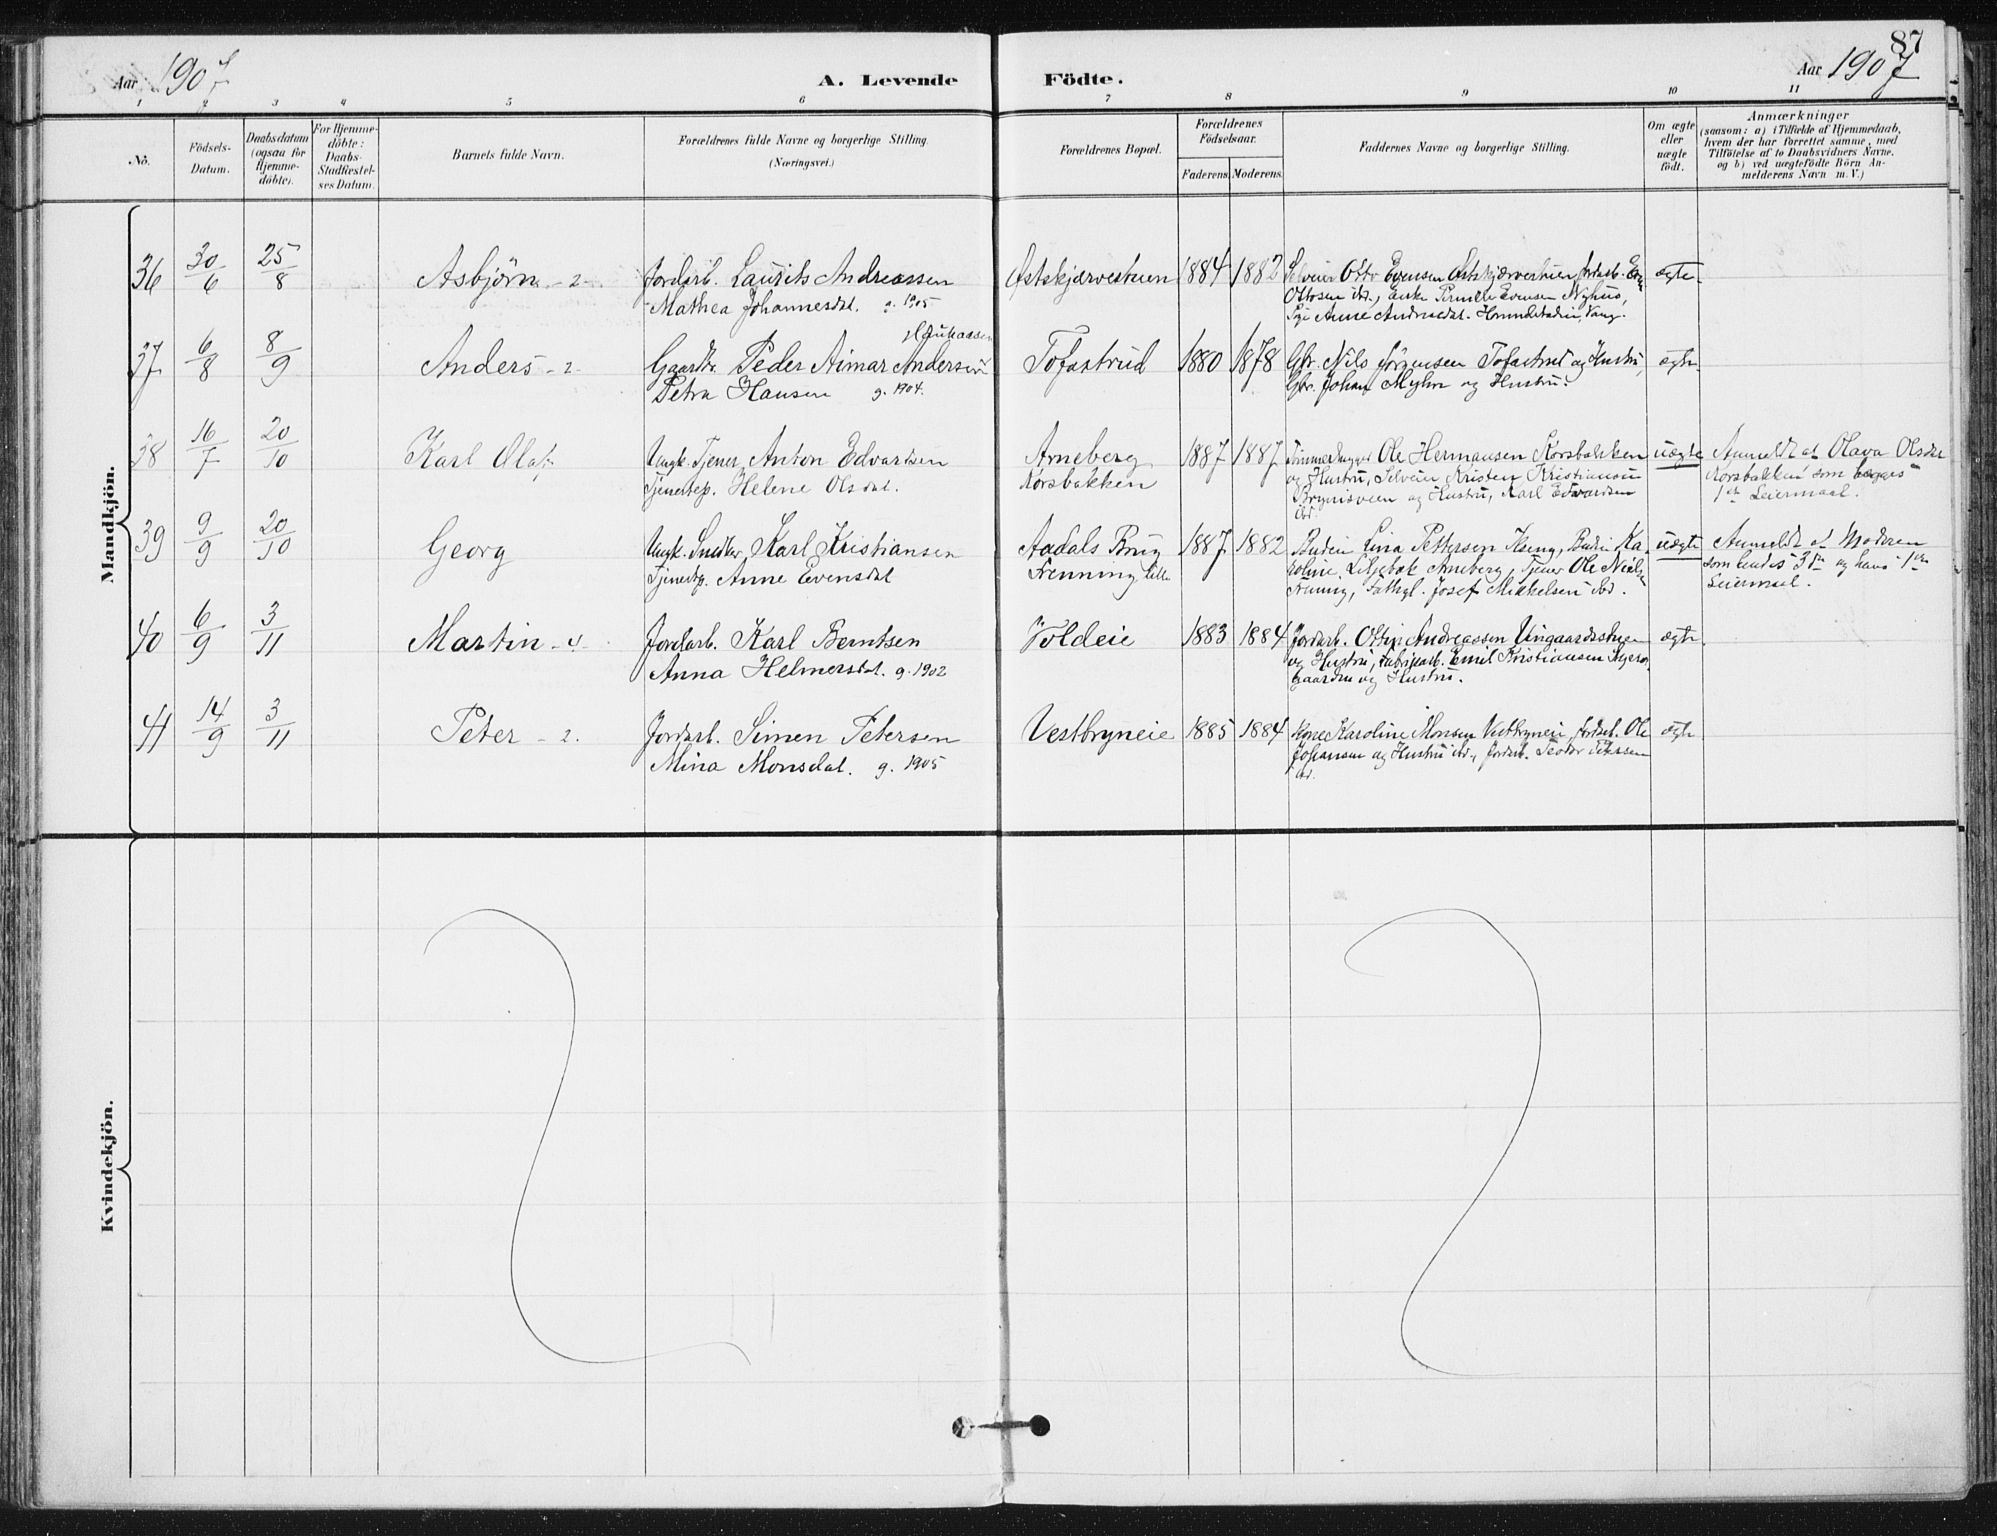 87
Aar 1907
A. Levende Födte.
Aar 1907
1 2 3 4 5 6 7 8 9 10 11
No.
Födsels-
Datum.
Daabsdatum
(ogsaa for
Hjemme-
döbte).
For Hjemme-
döbte:
Daabs-
Stadfæstel-
ses Datum.
Barnets fulde Navn.
Forældrenes fulde Navne og borgerlige Stilling.
(Næringsvei.)
Forældrenes Bopæl.
Forældrenes
Födselsaar.
Faderens. Moderens.
Faddernes Navne og borgerlige Stilling.
Om ægte
eller
uægte
födt.
Anmærkninger
(saasom: a) i Tilfælde af Hjemmedaab,
hvem der har forrettet samme, med
Tilföielse af to Daabsvidners Navne.
og b) ved uægtefödte Börn An-
melderens Navn m. V.)
Mandkjön.
36 30/6 25/8 Asbjörn - 2 - Jordarb. Laurits Andreassen Østskjærvestuen 1884 1882 Selveier Otto Evensen Østskjærvestuen, Jordarb.
Mathea Johannesdat. g. 1905 Ottosen ibd., Enke Pernille Evensen Nyhus,
Pige Anne Andreasdat. Vang.
37 6/8 8/9 Anders - 2 - Gaardbr. Peder Aimar Andersen Tofastrud 1880 1878 Gbr. Nils Jörgensen Tofastrud og Hustru, ægte
Petra Hansen g. 1904. Gbr. Johan Myhre og Hustru.
38 16/7 20/10 Karl Olaf Ungk. Tjener Anton Edvartsen Arneberg 1887 1887 Ole Hermansen Korsbakken uægte Anmeldt af Olava Olsdat
Tjenestep. Helene Olsdat. Korsbakken og Hustru, Selveier Kristen Kristiansen Korsbakken som begges
og Hustru, Karl Edvardsen 1ste Leiermaal.
ibd.
39 9/9 20/10 Georg Ungk. Snedker Karl Kristiansen Aadals Brug 1887 1882 Budeie Lina Pettersen Budeie Ka- uægte Anmeldt af Moderen
Tjenestp. Anne Evensdat Frenning lille roline Liljebæk Arneberg, Tjener Ole som hendes 3die og hans 1ste
Josef Mikkelsen ibd. Leiermaal.
40 6/9 3/11 Martin - 4 - Jordarb. Karl Berntsen Voldeie 1883 1884 Jordarb. Ottin Andreassen ægte
Anna Helmersdat. g. 1902 og Hustru, Fabrikarb. Emil Kristiansen
og Hustru.
41 14/9 3/11 Peter - 2. Jordarb. Simen Petersen Vestbryneie 1885 1884 Karoline Monsen Vestbryneie, Jordarb. Ole ægte
Mina Monsdat. g. 1905 Johansen og Hustru ibd., Jordarb.
ibd.
Kvindekjön.